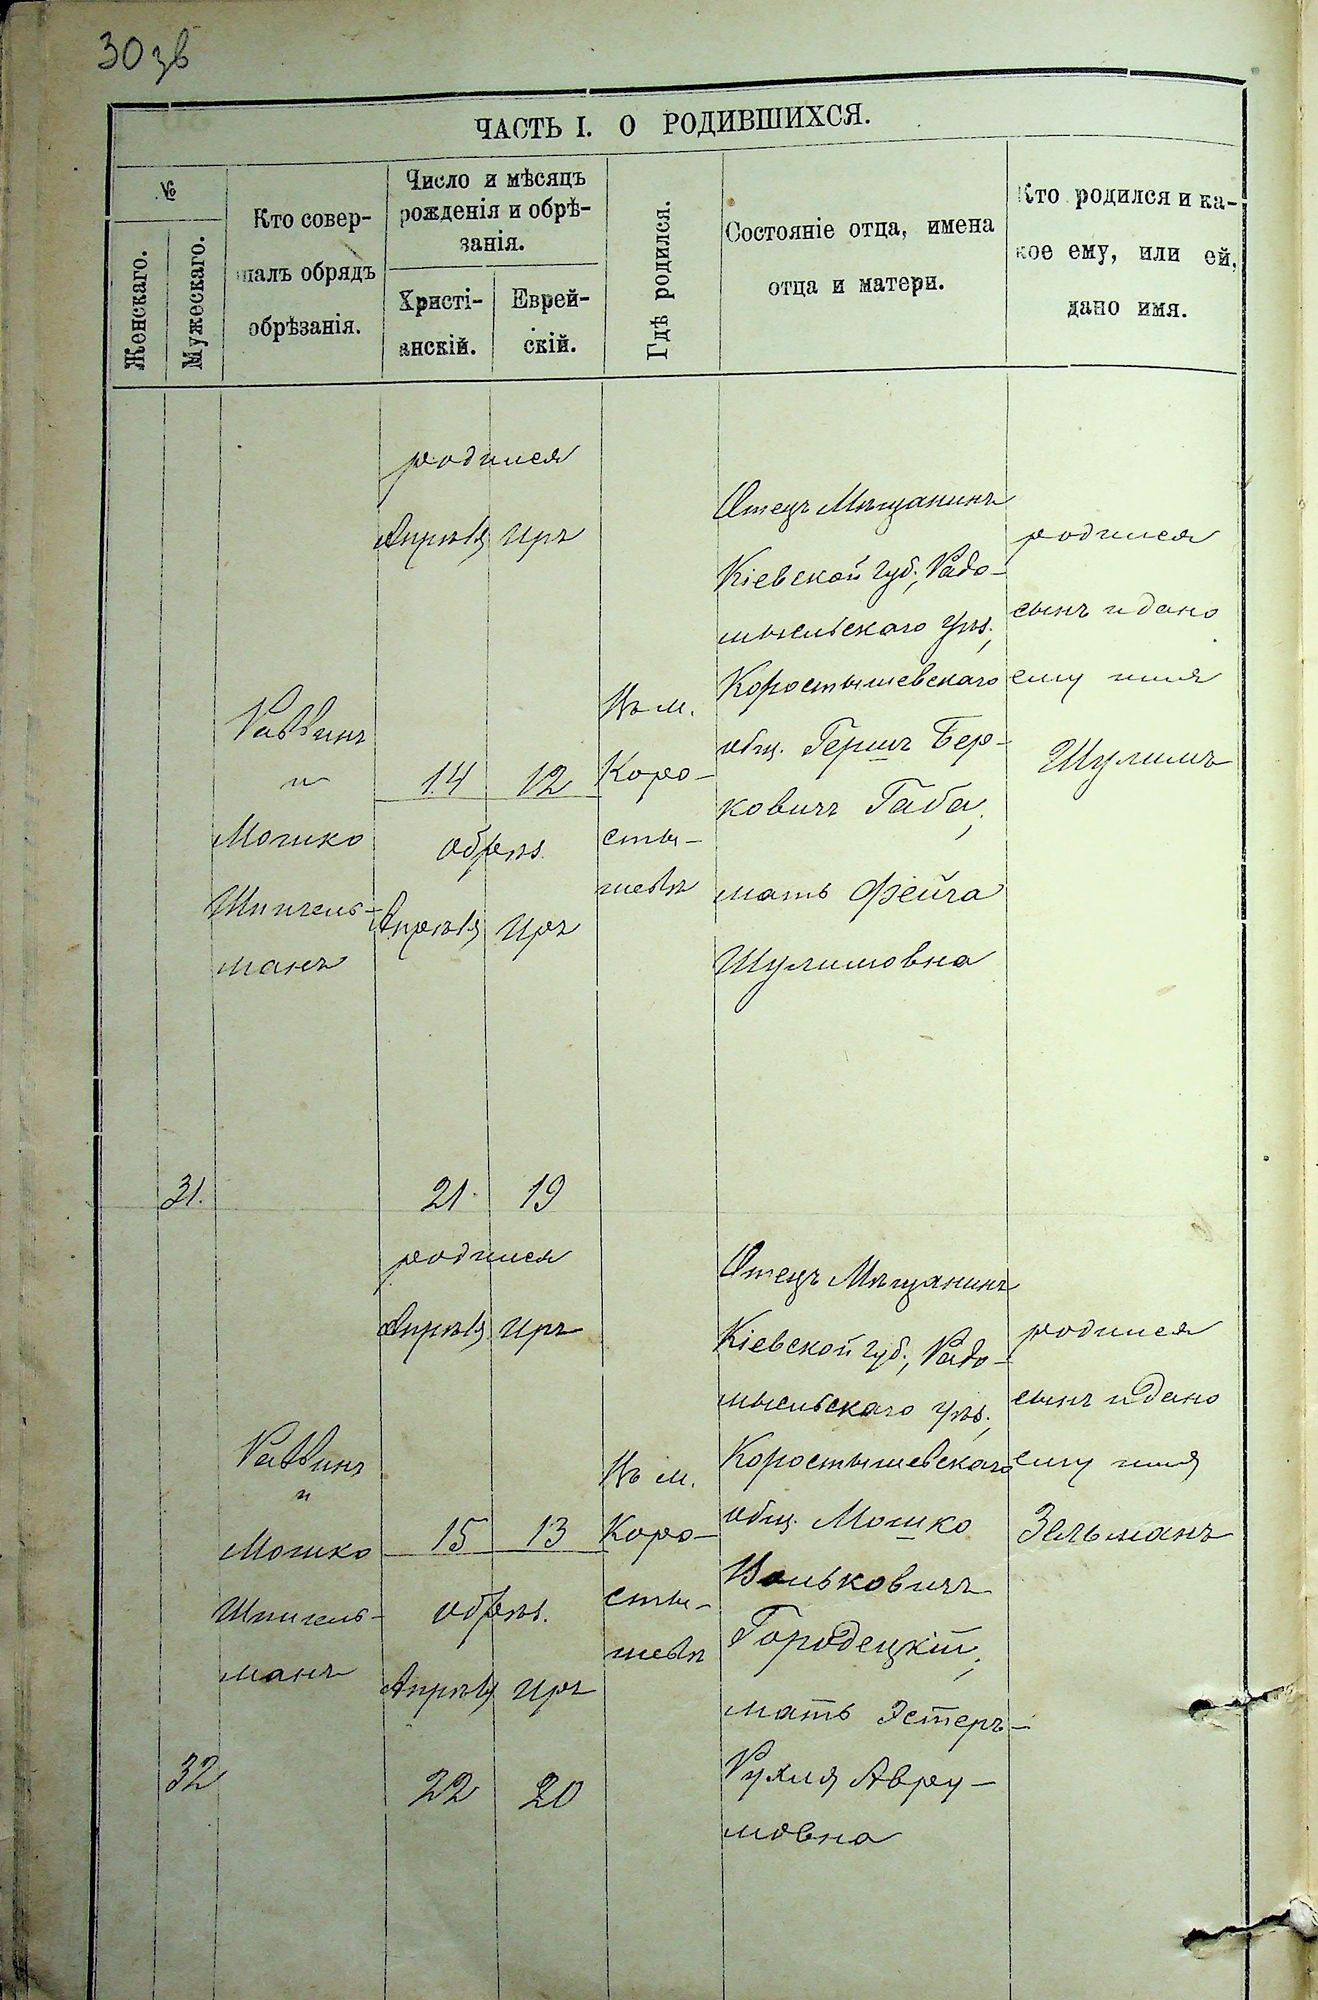 30 зв
ЧАСТЬ I. О РОДИВШИХСЯ.
№
Женскаго.
Мужескаго.
Кто совер-
шалъ обрядъ
обрѣзанія.
Число и мѣсяцъ
рожденія и обрѣ-
занія.
Христі-
анскій.
Еврей-
скій.
Гдѣ родился.
Состояніе отца, имена
отца и матери.
Кто родился и ка-
кое ему, или ей,
дано имя.
31.
Раввинъ
и
Мошко
Шпигель-
манъ
родился
Апрѣля Иръ
14 12
обрѣз.
Апрѣля Иръ
21 19
Въ м.
Коро-
сты-
шевѣ
Отецъ Мѣщанинъ
Кіевской губ., Радо-
мысльскаго уѣз.,
Коростышевскаго
общ. Гершъ Бер-
ковичъ Габа,
мать Фейга
Шулимовна
родился
сынъ и дано
ему имя
Шулимъ
32
Раввинъ
и
Мошко
Шпигель-
манъ
родился
Апрѣля Иръ
15 13
обрѣз.
Апрѣля Иръ
22 20
Въ м.
Коро-
сты-
шевѣ
Отецъ Мѣщанинъ
Кіевской губ., Радо-
мысльскаго уѣз.,
Коростышевскаго
общ. Мошко
Вольковичъ
Городецкій,
мать Эстеръ-
Рухля Авру-
мовна
родился
сынъ и дано
ему имя
Зельманъ